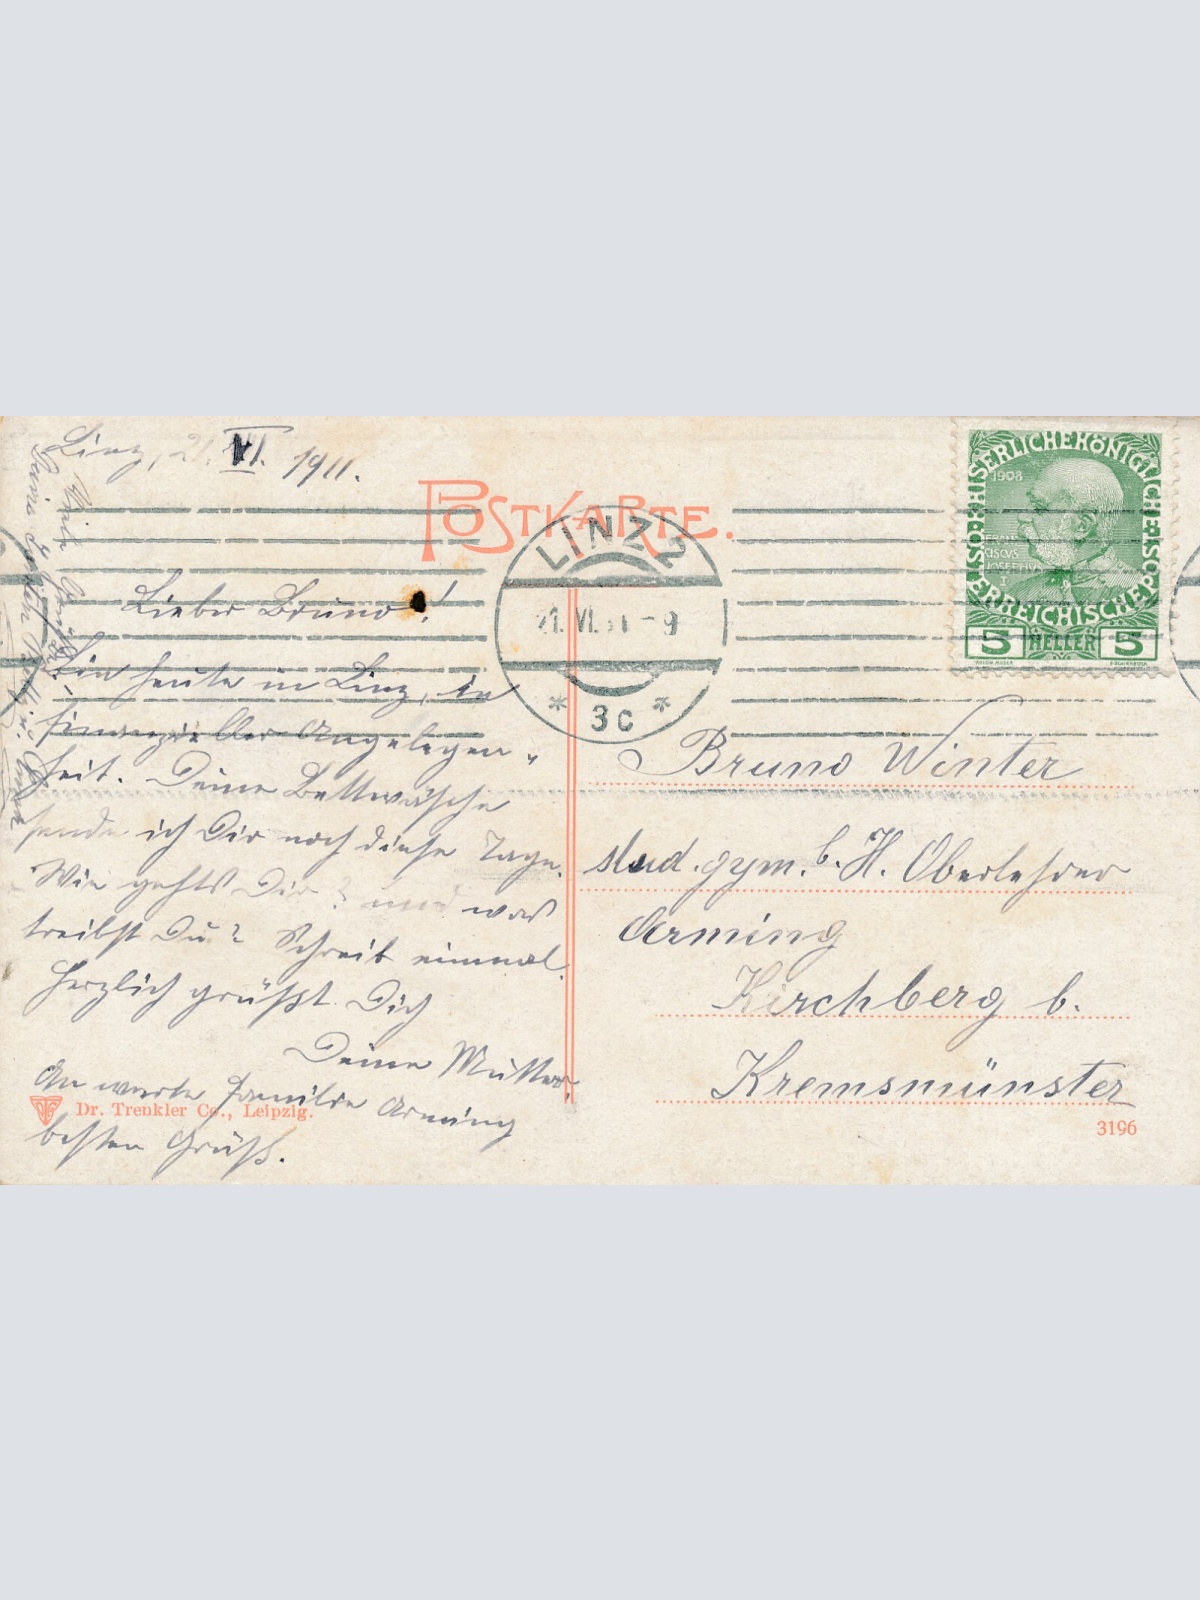 Linz, 21. VI. 1911.
POSTKARTE.
LINZ 2
21. VI. 11 - 9
* 3c *
KAISERLICHE KÖNIGLICHE ÖSTERREICHISCHE POST
1908
FRANCISCVS JOSEPHVS I
5 HELLER 5
Lieber Bruno!
Bin heute in Linz, in
finanzieller Angelegen-
heit. Deine Bettwäsche
sende ich Dir noch diese Tage.
Wie gehts Dir? und was
treibst Du? Schreib einmal.
Herzlich grüßt Dich
Deine Mutter.
An werte Familie Arming
besten Gruß.
Bruno Winter
stud. gym. b. H. Oberlehrer
Arming
Kirchberg b.
Kremsmünster
Dr. Trenkler Co., Leipzig.
3196